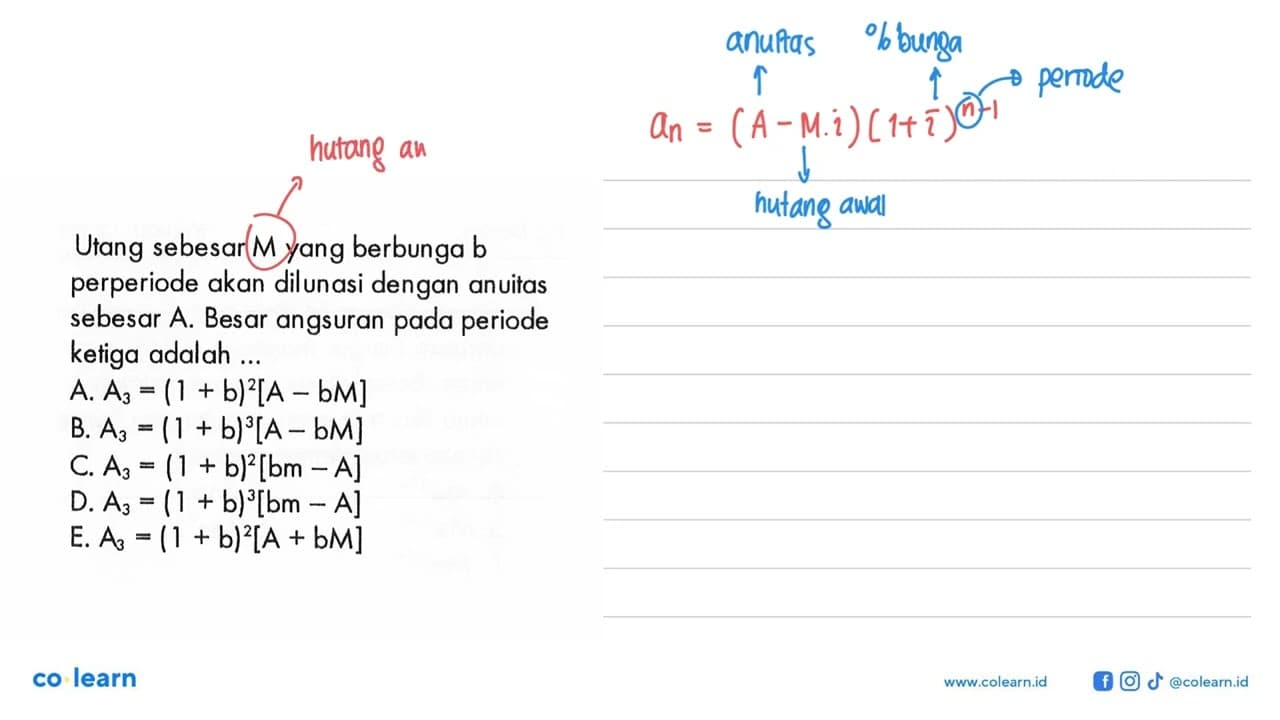 anuitas % bunga
periode
aₙ = (A - M.i) (1 + i)ⁿ⁻¹
hutang awal
hutang aw
Utang sebesar M yang berbunga b
perperiode akan dilunasi dengan anuitas
sebesar A. Besar angsuran pada periode
ketiga adalah ...
A. A₃ = (1 + b)²[A – bM]
B. A₃ = (1 + b)³[A – bM]
C. A₃ = (1 + b)²[bm – A]
D. A₃ = (1 + b)³[bm – A]
E. A₃ = (1 + b)²[A + bM]
co learn
www.colearn.id @colearn.id